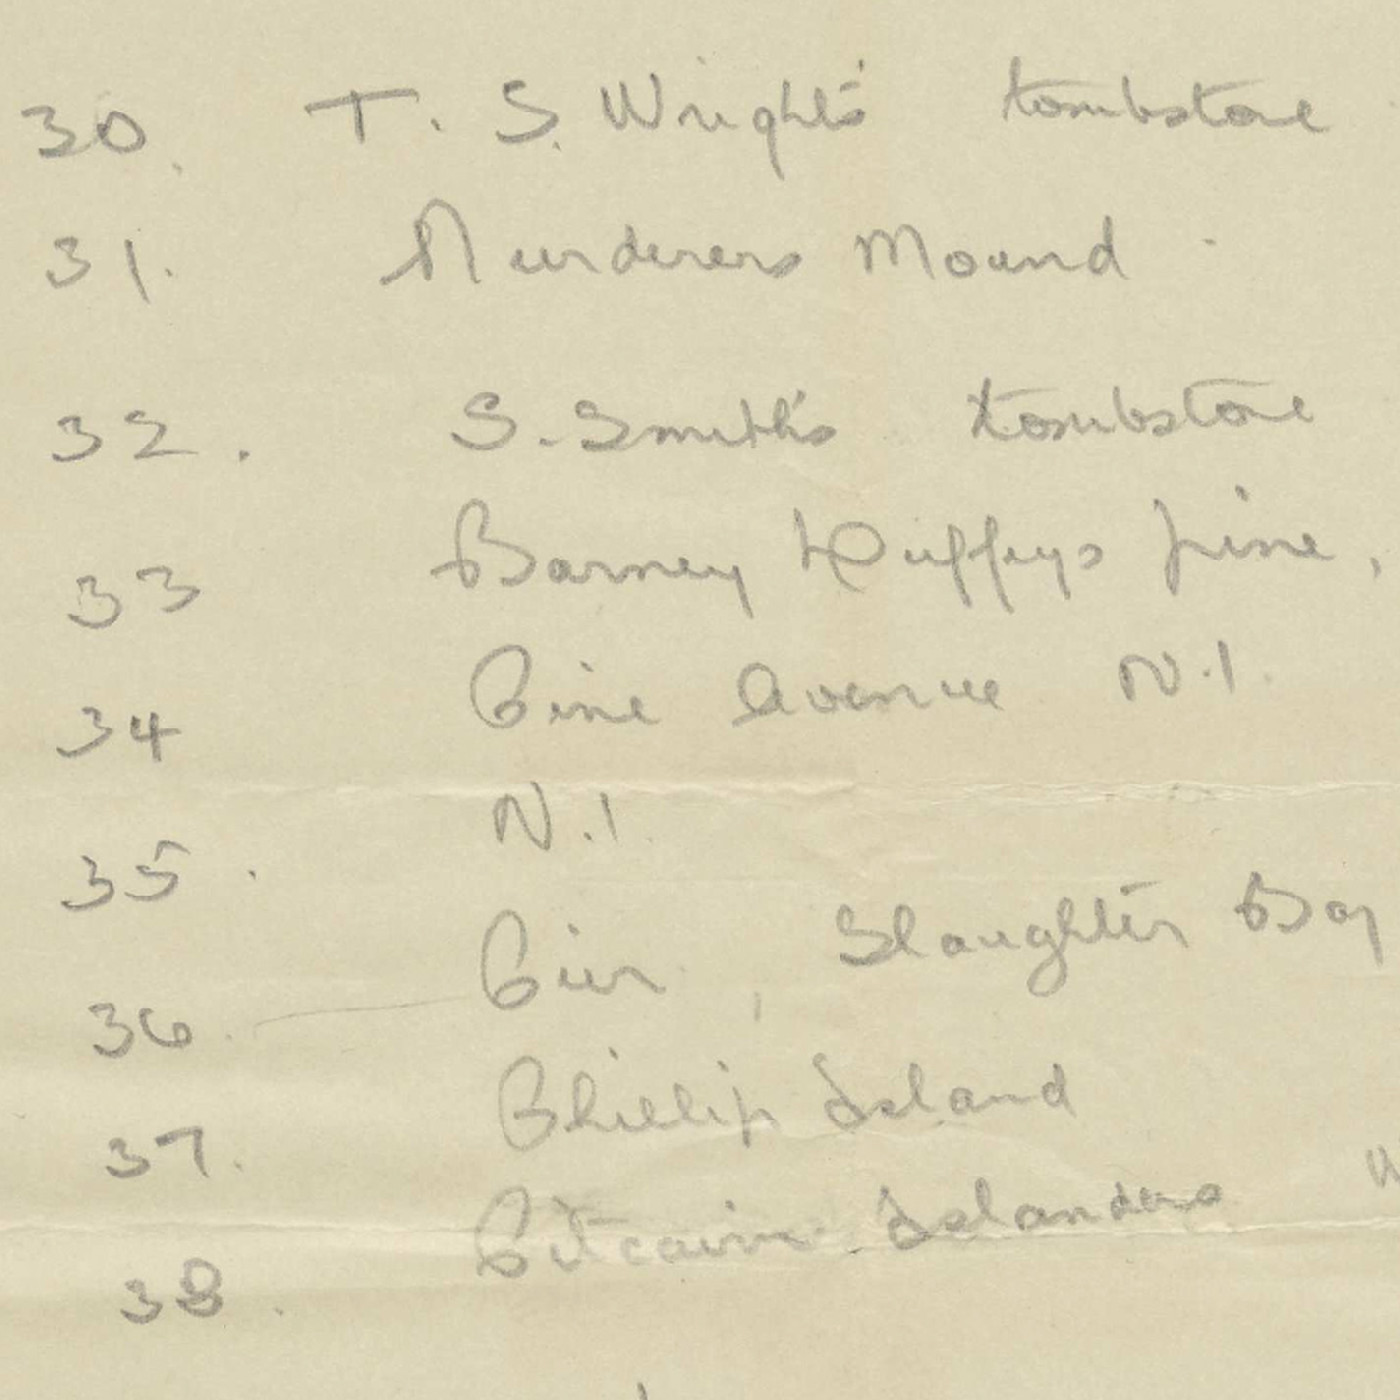 30. T. S. Wright's tombstone
31. Murderers Mound.
32. S. Smith's tombstone
33 Barney Duffeys pine,
34 Pine Avenue N.I.
35. N.I.
36. Pier, Slaughter Bay
37. Phillip Island
38. Pitcairn Islanders